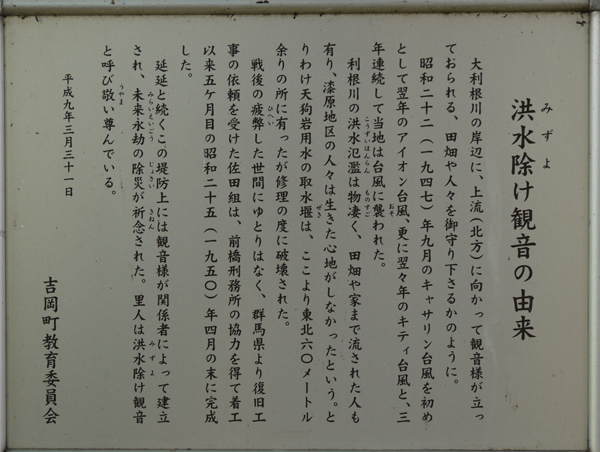 洪水除け観音の由来
大利根川の岸辺に、上流(北方)に向かって観音様が立っ
ておられる、田畑や人々を御守り下さるかのように。
昭和二十二(一九四七)年九月のキャサリン台風を初め
として翌年のアイオン台風、更に翌々年のキティ台風と、三
年連続して当地は台風に襲われた。
利根川の洪水氾濫は物凄く、田畑や家まで流された人も
有り、漆原地区の人々は生きた心地がしなかったという。と
りわけ天狗岩用水の取水堰は、ここより東北六〇メートル
余りの所に有ったが修理の度に破壊された。
戦後の疲弊した世間にゆとりはなく、群馬県より復旧工
事の依頼を受けた佐田組は、前橋刑務所の協力を得て着工
以来五ケ月目の昭和二十五(一九五〇)年四月の末に完成
した。
延延と続くこの堤防上には観音様が関係者によって建立
され、未来永劫の除災が祈念された。里人は洪水除け観音
と呼び敬い尊んでいる。
平成九年三月三十一日
吉岡町教育委員会